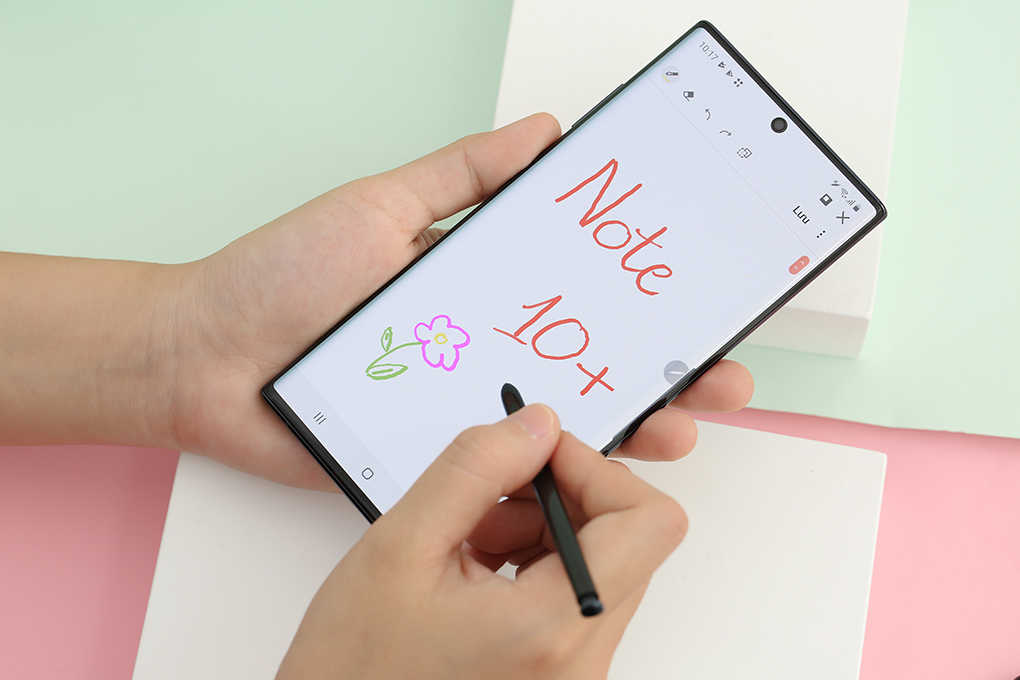 10:17
Lưu
Note
10+